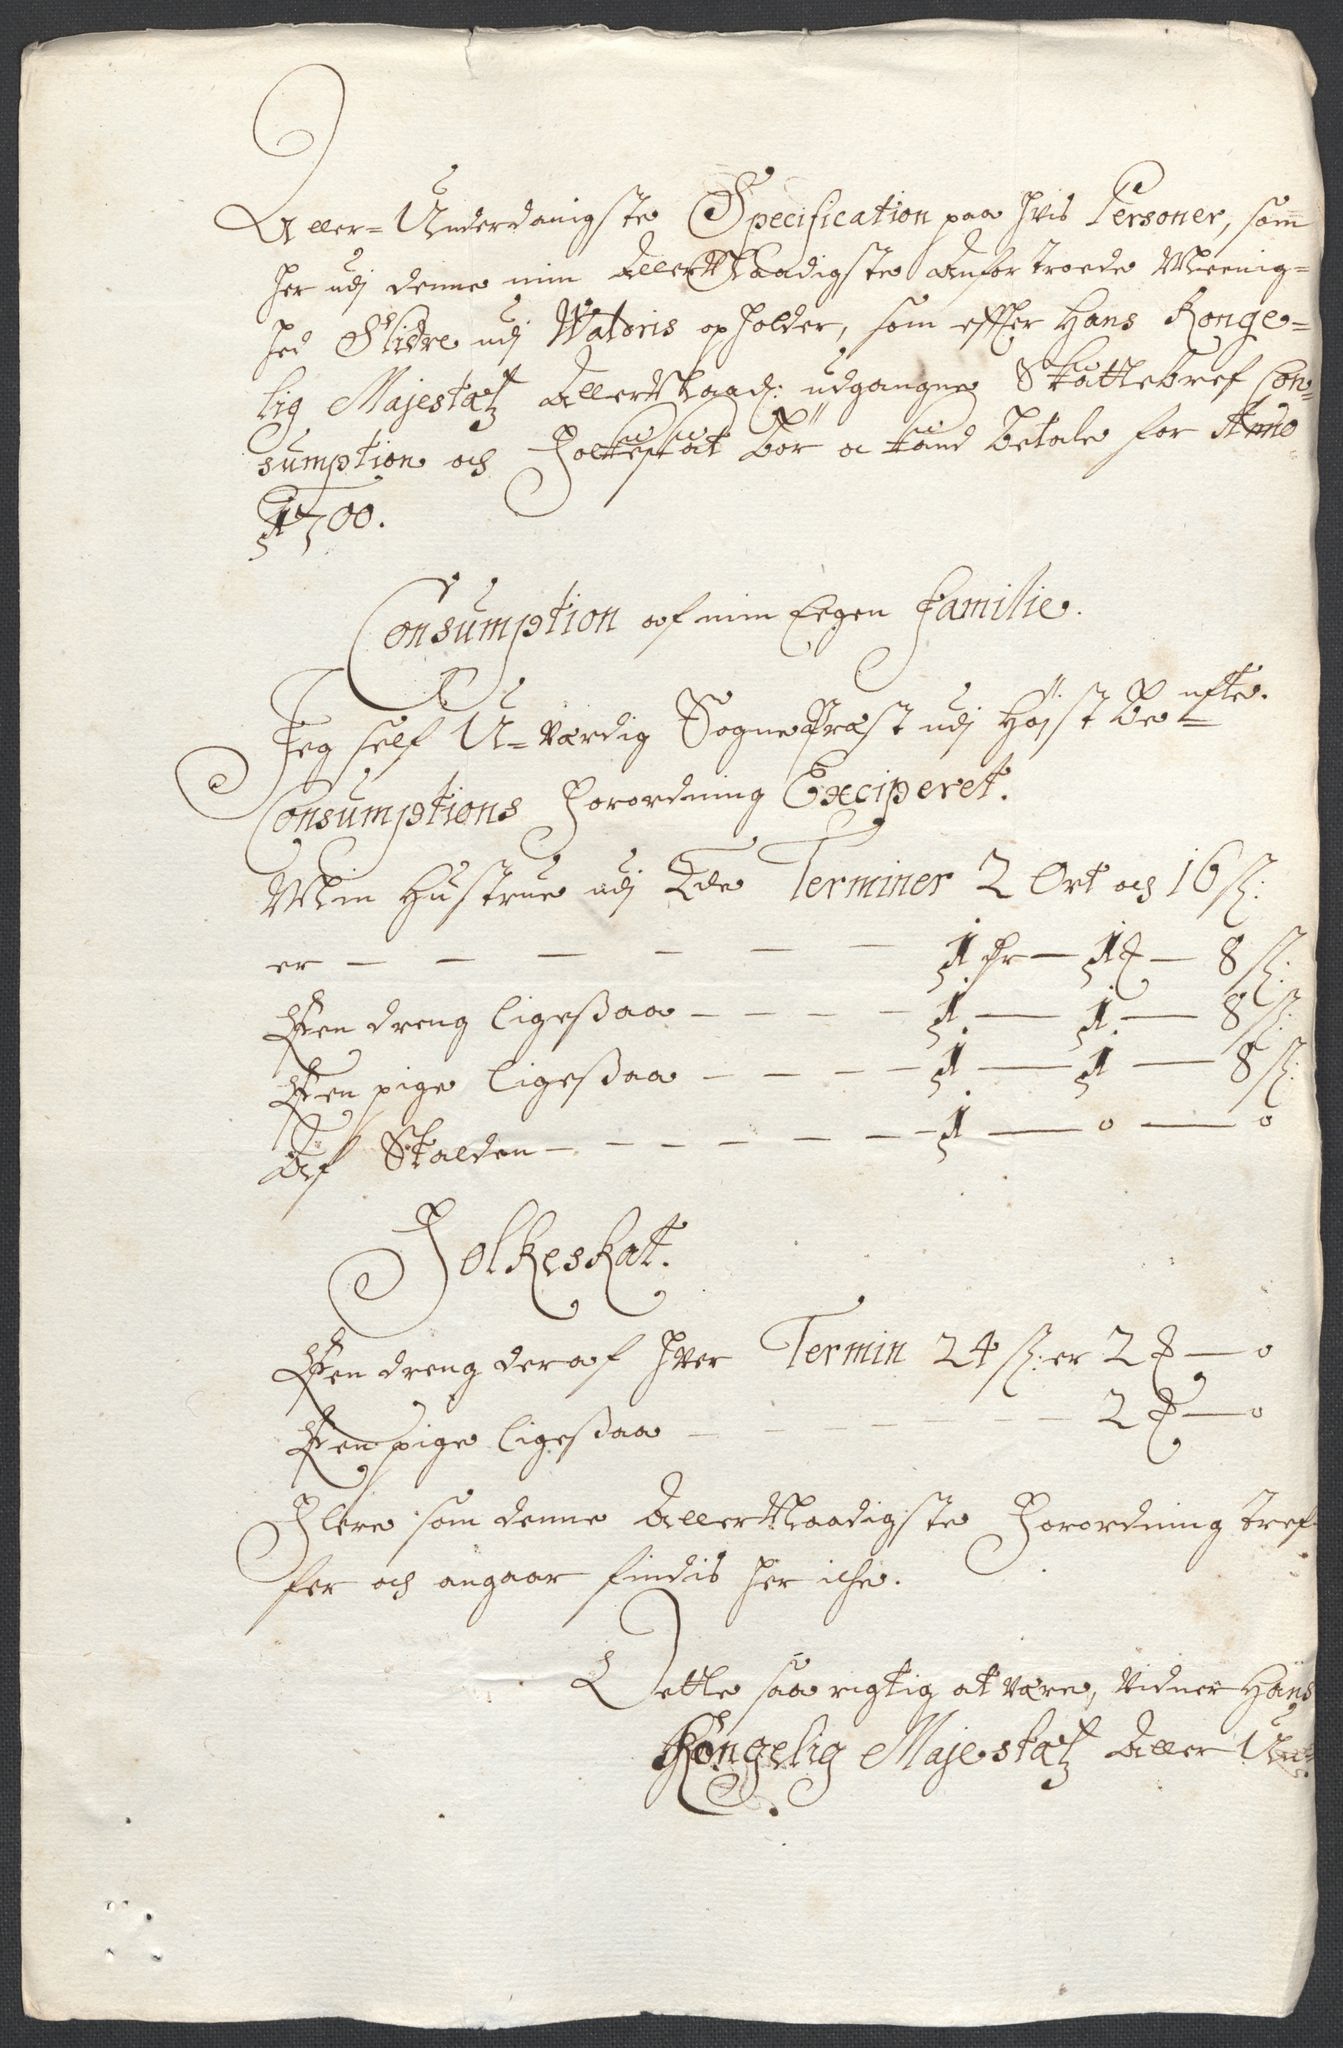 Aller-Underdanigste Specification paa hvis Personer, som
her udj denne min AllerNaadigste Anfortroede Meenig-
hed Slidre udj Waloris opholder, som effter Hans Konge-
lig Majestatz AllerNaad: udgangne Skattebref Con-
sumption och Folkeskat bör oc kand betale for Anno
1700.
Consumption af min Eegen Familie.
Jeg self U-værdig SognePræst udj Höjst bemelte
Consumptions Forordning Exciperet.
Min Hustrue udj Terminer 2 Ort och 16 ß:
er — — — — — — 1 dr — 1 — 8 ß:
Een dreng ligeßaa — — — — 1 — 1 — 8 ß:
Een pige ligeßaa — — — — 1 — 1 — 8 ß:
Af Skalden — — — — — — 1 — 0 — 0
Folkeskat.
Een dreng deraf hver Termin 24 ß: er 2 — 0
Een pige ligeßaa — — — — — — 2 — 0
Flere som denne AllerNaadigste Forordning tref-
fer och angaar findis her iche.
Dette saa rigtig at være, vidner Hans
Kongelig Majestatz Aller Un-